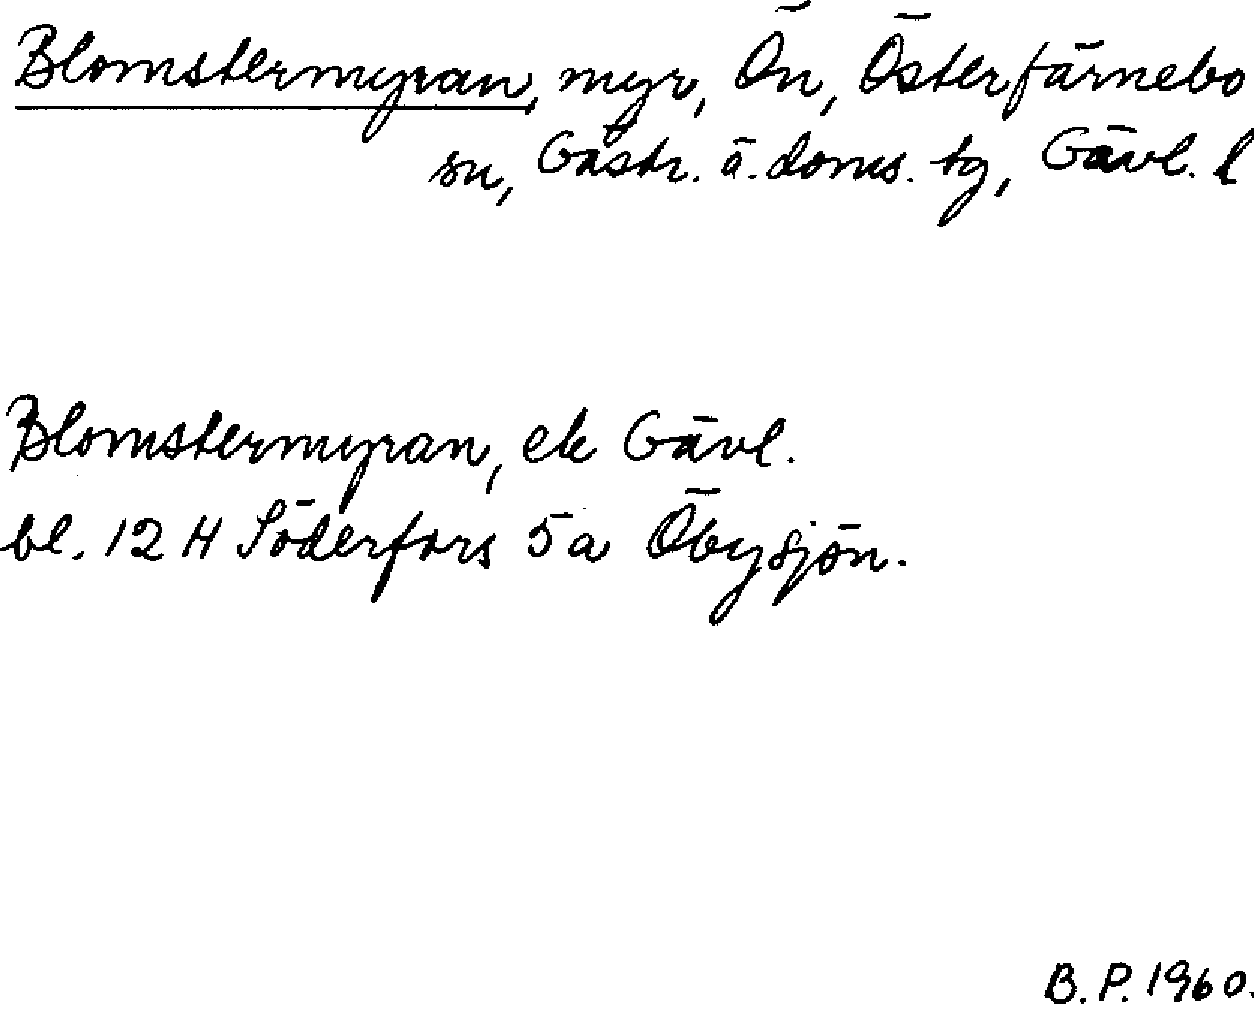 Blomstermyran, myr, Ön, Österfärnebo
sn, Gästr. ö. doms. tg, Gävl. l
Blomstermyran, ek Gävl.
bl. 12 H Söderfors 5 a Öbysjön.
B. P. 1960.